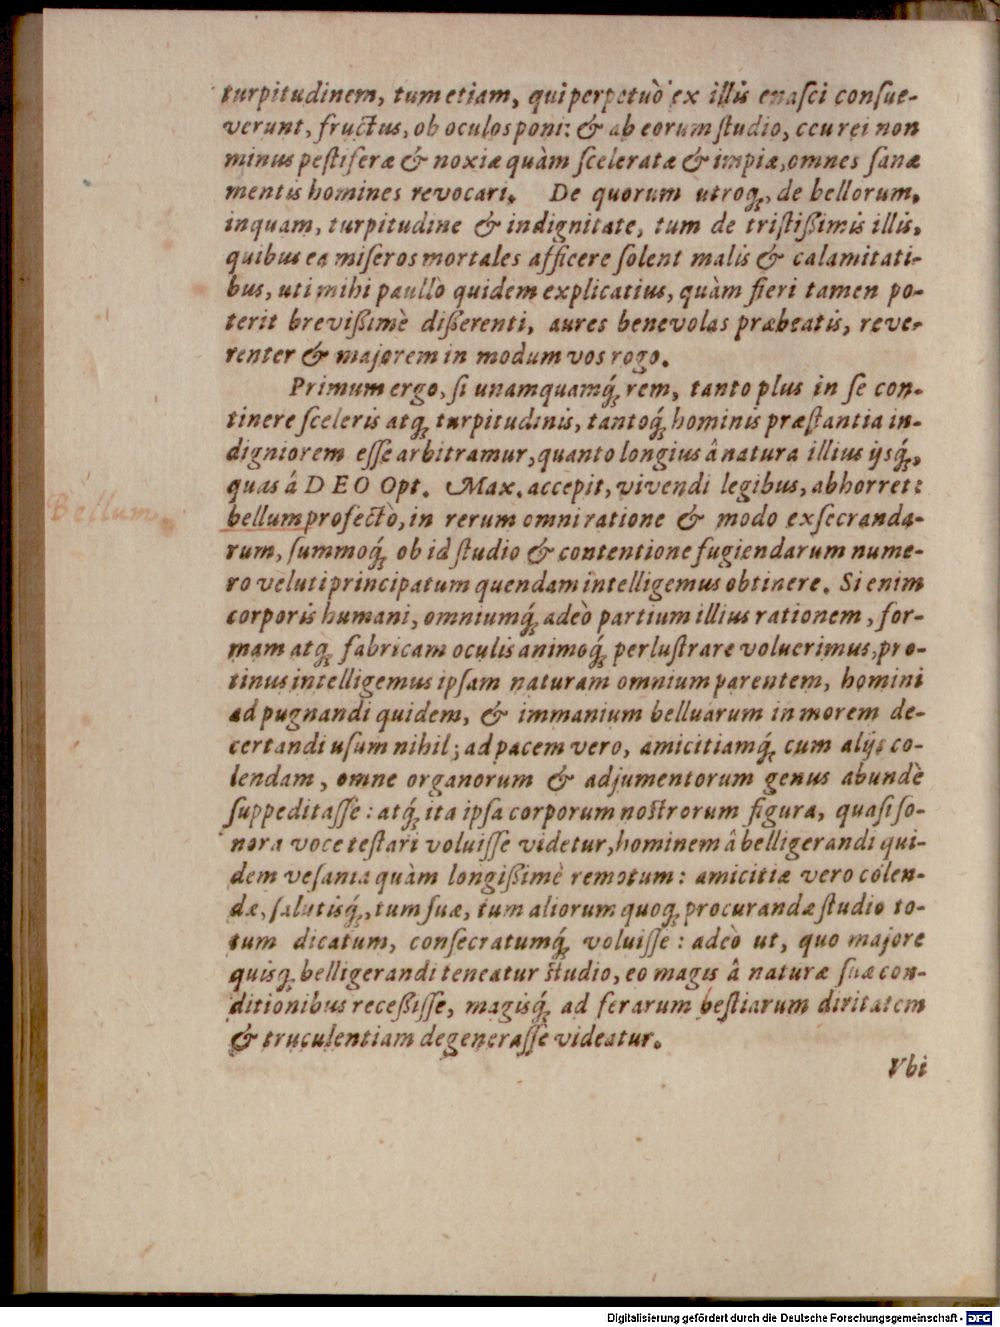 turpitudinem, tum etiam, qui perpetuò ex illis enaſci conſue-
verunt, fructus, ob oculos poni: & ab eorum ſtudio, ceu rei non
minus peſtiferæ & noxiæ quàm ſceleratæ & impiæ, omnes ſanæ
mentis homines revocari. De quorum utroq́;, de bellorum,
inquam, turpitudine & indignitate, tum de triſtißimis illis,
quibus ea miſeros mortales afficere ſolent malis & calamitati-
bus, uti mihi paullò quidem explicatius, quàm fieri tamen po-
terit brevißimè dißerenti, aures benevolas præbeatis, reve-
renter & majorem in modum vos rogo.
Primum ergo, ſi unamquamq́; rem, tanto plus in ſe con-
tinere ſceleris atq; turpitudinis, tantoq́; hominis præſtantia in-
digniorem eſſe arbitramur, quanto longius â natura illius ijsq́;,
quas á DEO Opt. Max. accepit, vivendi legibus, abhorret:
Bellum
bellum profectò, in rerum omni ratione & modo exſecranda-
rum, ſummoq́; ob id ſtudio & contentione fugiendarum nume-
ro veluti principatum quendam intelligemus obtinere. Si enim
corporis humani, omniumq́; adeò partium illius rationem, for-
mam atq; fabricam oculis animoq́; perluſtrare voluerimus, pro-
tinus intelligemus ipſam naturam omnium parentem, homini
ad pugnandi quidem, & immanium belluarum in morem de-
certandi uſum nihil; ad pacem vero, amicitiamq́; cum alijs co-
lendam, omne organorum & adjumentorum genus abundè
ſuppeditaſſe: atq́; ita ipſa corporum noſtrorum figura, quaſi ſo-
nora voce teſtari voluiſſe videtur, hominem â belligerandi qui-
dem veſania quàm longißimè remotum: amicitiæ vero colen-
dæ, ſalutisq́;, tum ſuæ, tum aliorum quoq; procurandæ ſtudio to-
tum dicatum, conſecratumq́; voluiſſe: adeò ut, quo majore
quisq; belligerandi teneatur ſtudio, eo magis â naturæ ſuæ con-
ditionibus receßiſſe, magisq́; ad ferarum beſtiarum diritatem
& truculentiam degeneraſſe videatur.
Vbi
Digitalisierung gefördert durch die Deutsche Forschungsgemeinschaft - DFG